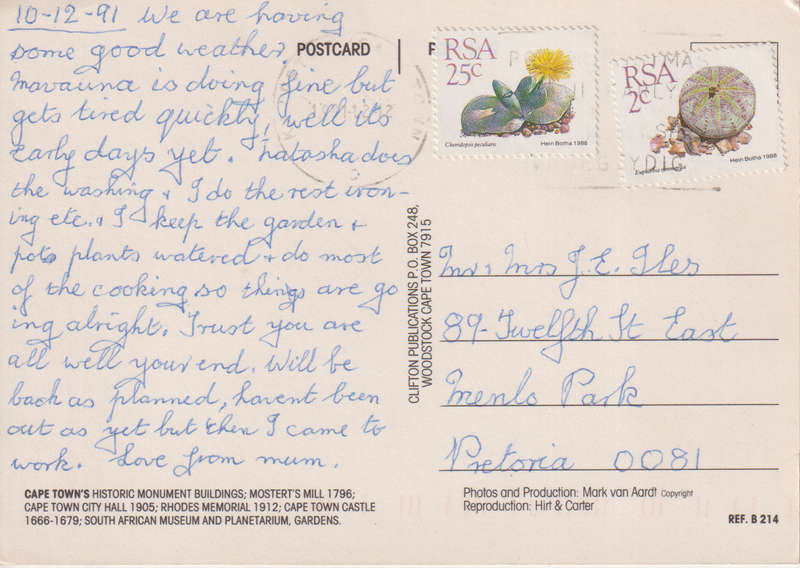 10-12-91 We are having
some good weather.
Mavauna is doing fine but
gets tired quickly, well its
early days yet. Natasha does
the washing + I do the rest iron-
ing etc. + I keep the garden +
pots plants watered + do most
of the cooking so things are go
ing alright. Trust you are
all well your end. Will be
back as planned, havent been
out as yet but then I came to
work. Love from mum.
CAPE TOWN'S HISTORIC MONUMENT BUILDINGS; MOSTERT'S MILL 1796;
CAPE TOWN CITY HALL 1905; RHODES MEMORIAL 1912; CAPE TOWN CASTLE
1666-1679; SOUTH AFRICAN MUSEUM AND PLANETARIUM, GARDENS.
POSTCARD
CLIFTON PUBLICATIONS P.O. BOX 248,
WOODSTOCK CAPE TOWN 7915
RSA
25c
Cheiridopsis peculiaris
Hein Botha 1988
RSA
2c
Hein Botha 1988
Mr & Mrs J.E. Iles
89-Twelfth St East
Menlo Park
Pretoria 0081
Photos and Production: Mark van Aardt Copyright
Reproduction: Hirt & Carter
REF. B 214